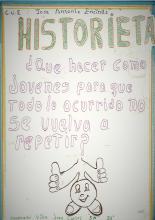 C.U.E José Antonio Encinas
HISTORIETA
¿Que hacer como
Jovenes para que
todo lo ocurrido no
se vuelva a
repetir?